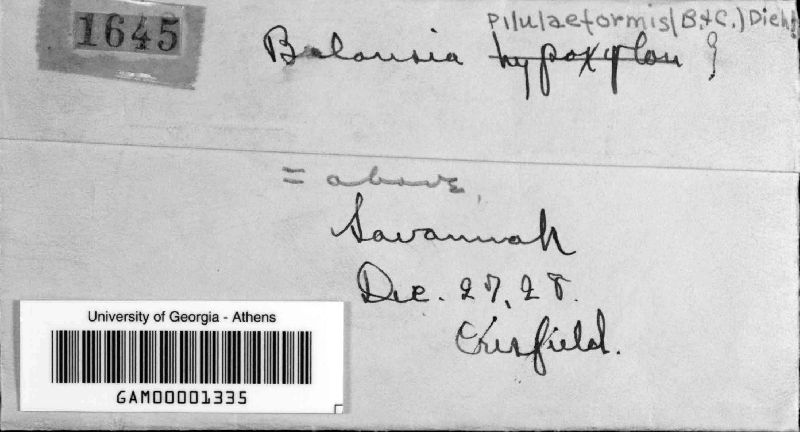 1645
Pilulaeformis (B.&C.) Diehl
Balansia hypoxylon ?
= above.
Savannah
Dec. 27, 28.
Crisfield.
University of Georgia - Athens
GAM00001335